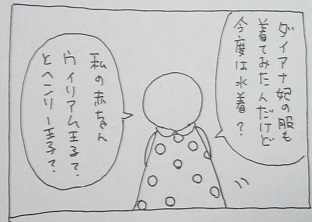 ダイアナ妃の服も
着てみたんだけど
今度は水着？
私の赤ちゃん
ウィリアム王子？
とヘンリー王子？